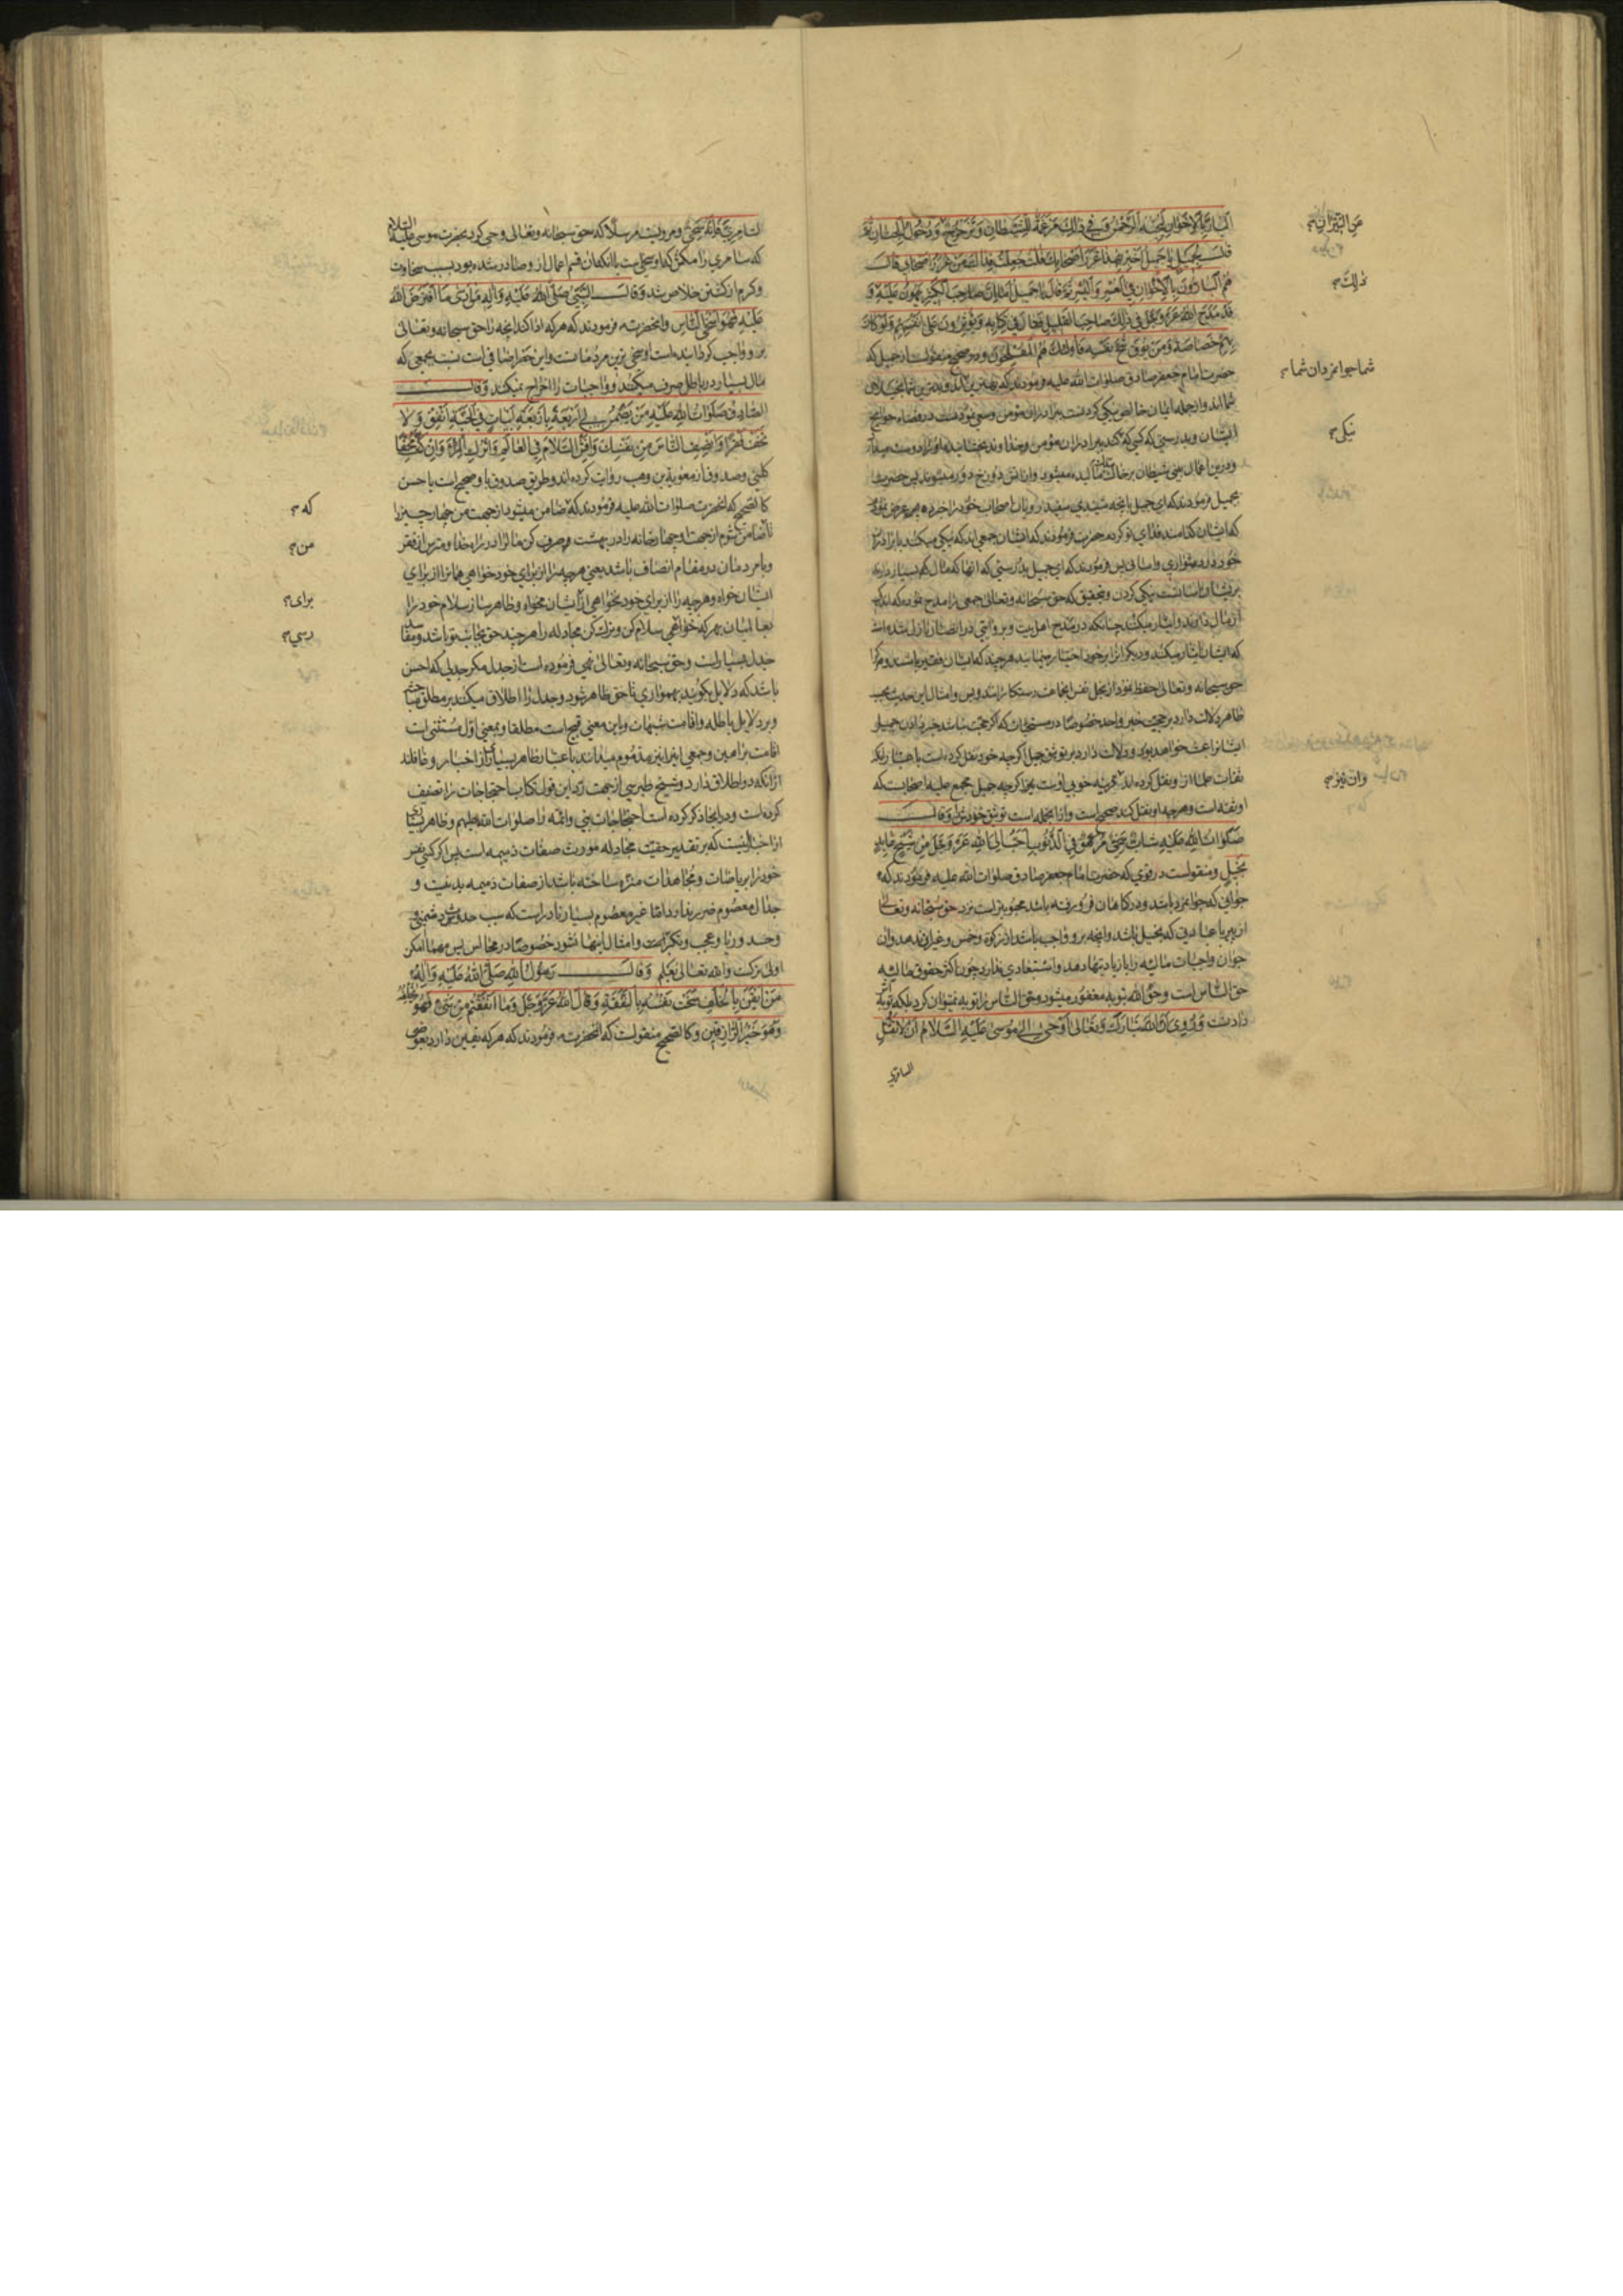 البار بالاخوان ليحبه الرحمن وفي ذلك مرغمة للشيطان وتزحزح و دخول الجنان ثم
قال لجميل يا جميل اخبر بهذا غرر اصحابك قلت جعلت فداك من غرر اصحابي قال
هم البارون بالاخوان في العسر واليسر ثم قال يا جميل اما ان صاحب الكثير يهون عليه و
قد مدح الله عز وجل في ذلك صاحب القليل فقال في كتابه ويؤثرون على انفسهم ولو كان
بهم خصاصة ومن يوق شح نفسه فاولئك هم المفلحون ودر صحيح منقولست از جميل كه
حضرت امام جعفر صادق صلوات الله عليه فرمودند كه بهترين
شما اند واز جمله ايمان خالص نيكي كردنست ببرادران مؤمن وسعي نمودنست در قضاء حوايج
ايشان وبدرستي كه كسي كه كند ببرادران مؤمن
ودرين اعمال بيني شيطان بر خاك ماليده ميشود واز اتش دوزخ دور ميشوند پس حضرت
بجميل فرمودند كه اي جميل
كه ايشان كدامند فداي تو كردم حضرت فرمودند كه ايشان جمعي اند كه نيكي ميكنند با برادران
خود در دشواري واساني پس فرمودند كه اي جميل بدرستي كه انها كه مال بسيار دارند
بر ايشان اسانست نيكي كردن وبتحقيق كه حق سبحانه وتعالى جمعي را مدح نموده كه اندك
از مال دارند وايثار ميكنند چنانكه در مدح اهل بيت وبروايتي در انصار نازل شده است
كه ايشان ايثار ميكنند وديگرانرا بر خود اختيار مينمايند هر چند كه ايشان فقير باشند وهر كرا
حق سبحانه وتعالى حفظ نمود از بخل نفس ايشان رستكارانند وبس وامثال اين حديث بحسب
ظاهر دلالت دارد بر حجيت خبر واحد خصوصا در مستحبات كه اگر حجت نباشد خبر دادن جميل
ايشانرا عبث خواهد بود ودلالت دارد بر توثيق جميل اگر چه خود نقل كرده است
ثقات
او ثقه است وهر چه او نقل كند صحيح است واز انجمله است توثيق خودش وقال
صلوات الله عليه شاب سخي مرهق في الذنوب احب الى الله عز وجل من شيخ عابد
بخيل ومنقولست در قوي كه حضرت امام جعفر صادق صلوات الله عليه فرمودند كه
جواني كه جوانمرد باشد ودر گناهان فرو رفته باشد محبوبتر است نزد حق سبحانه وتعالى
از پير با عبادتي كه بخيل باشد وانچه برو واجب باشد از زكوة وخمس وغير ان ندهد وان
جوان واجبات ماليه را با زيادتيها دهد واستبعادي ندارد چون اكثر حقوق ماليه
حق الناس است وحق الله بتوبه مغفور ميشود وحق الناس را توبه نميتوان كرد بلكه توبه اش
دادنست وروي ان الله تبارك وتعالى اوحى الى موسى عليه السلام ان لا تقتل
السامري
من النيران
ذلك
شما جوانمردان شما
نيكى
وان نيز
السامري فانه سخي ومرويست مرسلا كه حق سبحانه وتعالى وحي كرد بحضرت موسى عليه السلام
كه سامري را مكش كه او سخي است با انكه ان قسم اعمال از و صادر شده بود بسبب سخاوت
وكرم از كشتن خلاص شد وقال النبي صلى الله عليه واله من ادى ما افترض الله
عليه فهو اسخى الناس وانحضرت فرمودند كه هر كه ادا كند انچه را حق سبحانه وتعالى
برو واجب گردانيده است او سخي ترين مردمانست واين حصر اضافي است نسبت بجمعي كه
مال بسيار در باطل صرف ميكنند و واجبات را اخراج نميكنند وقال
الصادق صلوات الله عليه من يضمن لي اربعة باربعة ابيات في الجنة انفق ولا
تخف فقرا وانصف الناس من نفسك وافش السلام في العالم واترك المراء وان كنت محقا
كليني وصدوق از معوية بن وهب روايت كرده اند وطريق صدوق باو صحيح است يا حسن
كالصحيح كه انحضرت صلوات الله عليه فرمودند كه ضامن ميشود از جهت من چهار چيز را
تا ضامن شوم از جهت او چهار خانه را در بهشت وصرف كن مالرا در راه خدا ومترس از فقر
وبا مردمان در مقام انصاف باش يعني هر چه را از براي خود خواهي همانرا از براي
ايشان خواه وهر چه را از براي خود نخواهي از ايشان مخواه وظاهر ساز سلام خود را
بعالميان بهر كه خواهي سلام كن وترك كن مجادله را هر چند حق بجانب تو باشد
جدل بسيار است وحق سبحانه وتعالى نهي فرموده است از جدل مكر جدلي كه احسن
باشد كه دلايل بگويند بهمواري تا حق ظاهر شود وجدل را اطلاق ميكنند بر مطلق مباحثه
وبر دلايل باطله واقامت شبهات وباين معني قبيح است مطلقا وبمعني اول مستثنى است
اقامت براهين وجمعي اينرا نيز مذموم ميدانند باعتبار ظاهر بسياري از اخبار وغافلند
از انكه دو اطلاق دارد وشيخ طبرسي از جهت رد اين قول كتاب احتجاجات را تصنيف
كرده است ودر انجا ذكر كرده است احتجاجات نبي وائمه را صلوات الله عليهم وظاهر بسياري
از اخبار اينست كه بر تقدير حقيت مجادله مورث صفات ذميمه است پس اگر كسي نفس
خود را برياضات ومجاهدات منزه ساخته باشد از صفات ذميمه بد نيست و
جدال معصوم ضرر ندارد اما غير معصوم بسيار نادر است كه سبب حدوث دشمني
وحسد وريا وعجب وتكبر وامثال اينها نشود خصوصا در مجالس پس مهما امكن
اولى تركست والله تعالى يعلم وقال رسول الله صلى الله عليه واله
من ايقن بالخلف سخت نفسه بالنفقة وقال الله عز وجل وما انفقتم من شيء فهو يخلفه
وهو خير الرازقين وكالصحيح منقولست كه انحضرت فرمودند كه هر كه يقين دارد بعوض
كه
من
براى
رسي